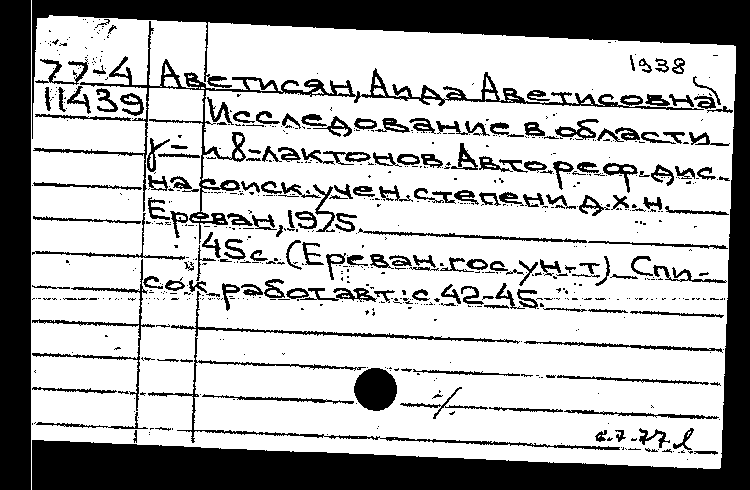 1938
77-4 Аветисян, Аида Аветисовна.
11439 Исследование в области
γ- и δ-лактонов. Автореф. дис.
на соиск. учен. степени д.х.н.
Ереван, 1975.
45с. (Ереван. гос. ун-т) Спи-
сок работ авт.: с. 42-45.